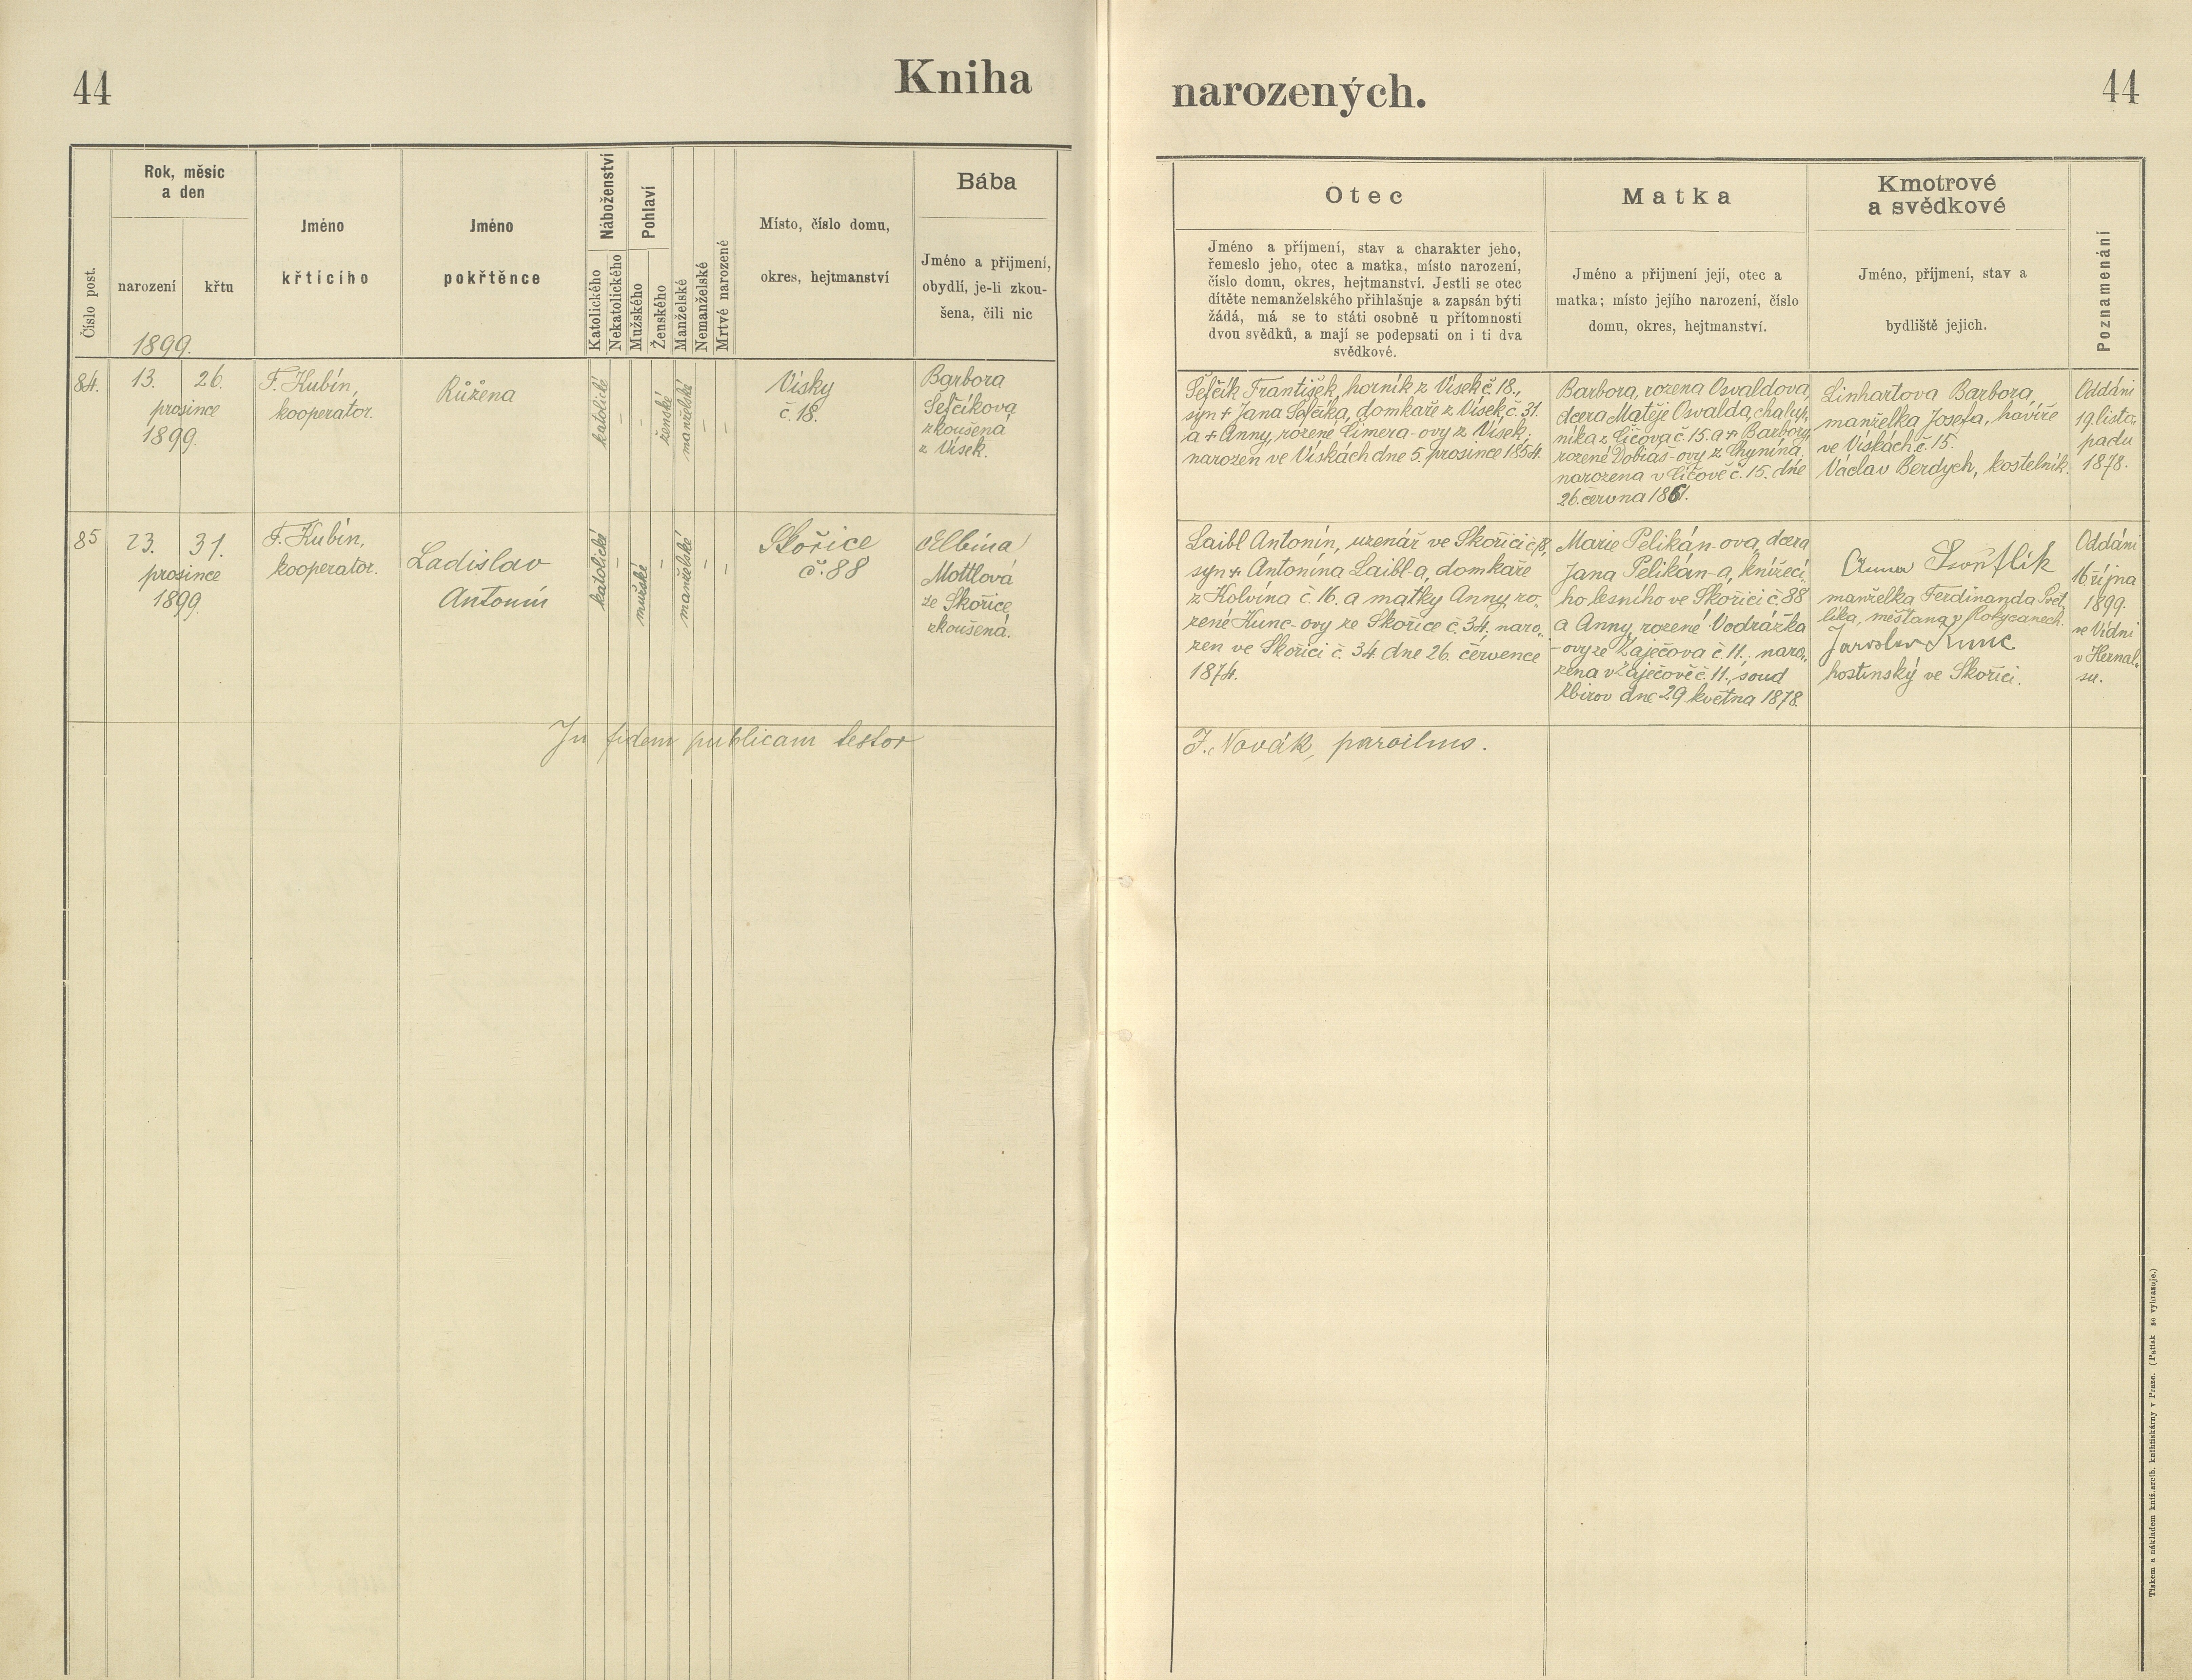 44
Kniha
narozených.
44
Číslo post.
Rok, měsíc
a den
narození
křtu
1899.
Jméno
křtícího
Jméno
pokřtěnce
Náboženství
Katolického
Nekatolického
Pohlaví
Mužského
Ženského
Manželské
Nemanželské
Mrtvé narozené
Místo, číslo domu,
okres, hejtmanství
Bába
Jméno a příjmení,
obydlí, je-li zkou-
šena, čili nic
Otec
Jméno a příjmení, stav a charakter jeho,
řemeslo jeho, otec a matka, místo narození,
číslo domu, okres, hejtmanství. Jestli se otec
dítěte nemanželského přihlašuje a zapsán býti
žádá, má se to státi osobně u přítomnosti
dvou svědků, a mají se podepsati on i ti dva
svědkové.
Matka
Jméno a příjmení její, otec a
matka; místo jejího narození, číslo
domu, okres, hejtmanství.
Kmotrové
a svědkové
Jméno, příjmení, stav a
bydliště jejich.
Poznamenání
84.
13.
26.
prosince
1899.
F. Kubín,
kooperator.
Růžena
katolické
–
–
ženské
manželské
–
–
Vísky
č. 18.
Barbora
Šefčíková
zkoušená
z Vísek.
Šefčík František, horník z Vísek č. 18.,
syn + Jana Šefčíka, domkaře z Vísek č. 31.
a + Anny, rozené Cimera-ovy z Vísek;
narozen ve Vískách dne 5. prosince 1854.
Barbora, rozena Osvaldova,
dcera Matěje Osvalda, chalup,
níka z Líčova č. 15. a + Barbory,
rozené Dobiáš-ovy z Chynína.
narozena v Líčově č. 15. dne
26. června 1861.
Linhartova Barbora,
manželka Josefa, havíře
ve Vískách č. 15.
Václav Berdych, kostelník.
Oddáni
19 listo,
padu
1878.
85
23.
31.
prosince
1899.
F. Kubín,
kooperator.
Ladislav
Antonín
katolické
–
mužské
–
manželské
–
–
Skořice
č. 88
Albína
Mottlová
ze Skořice,
zkoušená.
Laibl Antonín, uzenář ve Skořici
syn + Antonína Laibl-a, domkaře
z Kolvína č. 16. a matky Anny, ro,
zené Kunc-ovy ze Skořice č. 34. naro,
zen ve Skořici č. 34. dne 26. července
1874.
Marie Pelikán-ova, dcera
Jana Pelikán-a, knížecí,
ho lesního ve Skořici č. 88
a Anny, rozené Vodrážka
-ovy ze Zaječova č. 11., naro,
zena v Zaječově č. 11., soud
Zbirov dne 29 května 1878.
Anna Svntlik
manželka Ferdinanda Svět,
líka, měštana v Rokycanech.
Jaroslav Kunc
hostinský ve Skořici.
Oddáni
16 října
1899.
ve Vídni
v Hernal,
su.
In fidem publicam testor
F. Novák,
Tiskem a nákladem kníž.arcib. knihtiskárny v Praze. (Patisk se vyhrazuje.)